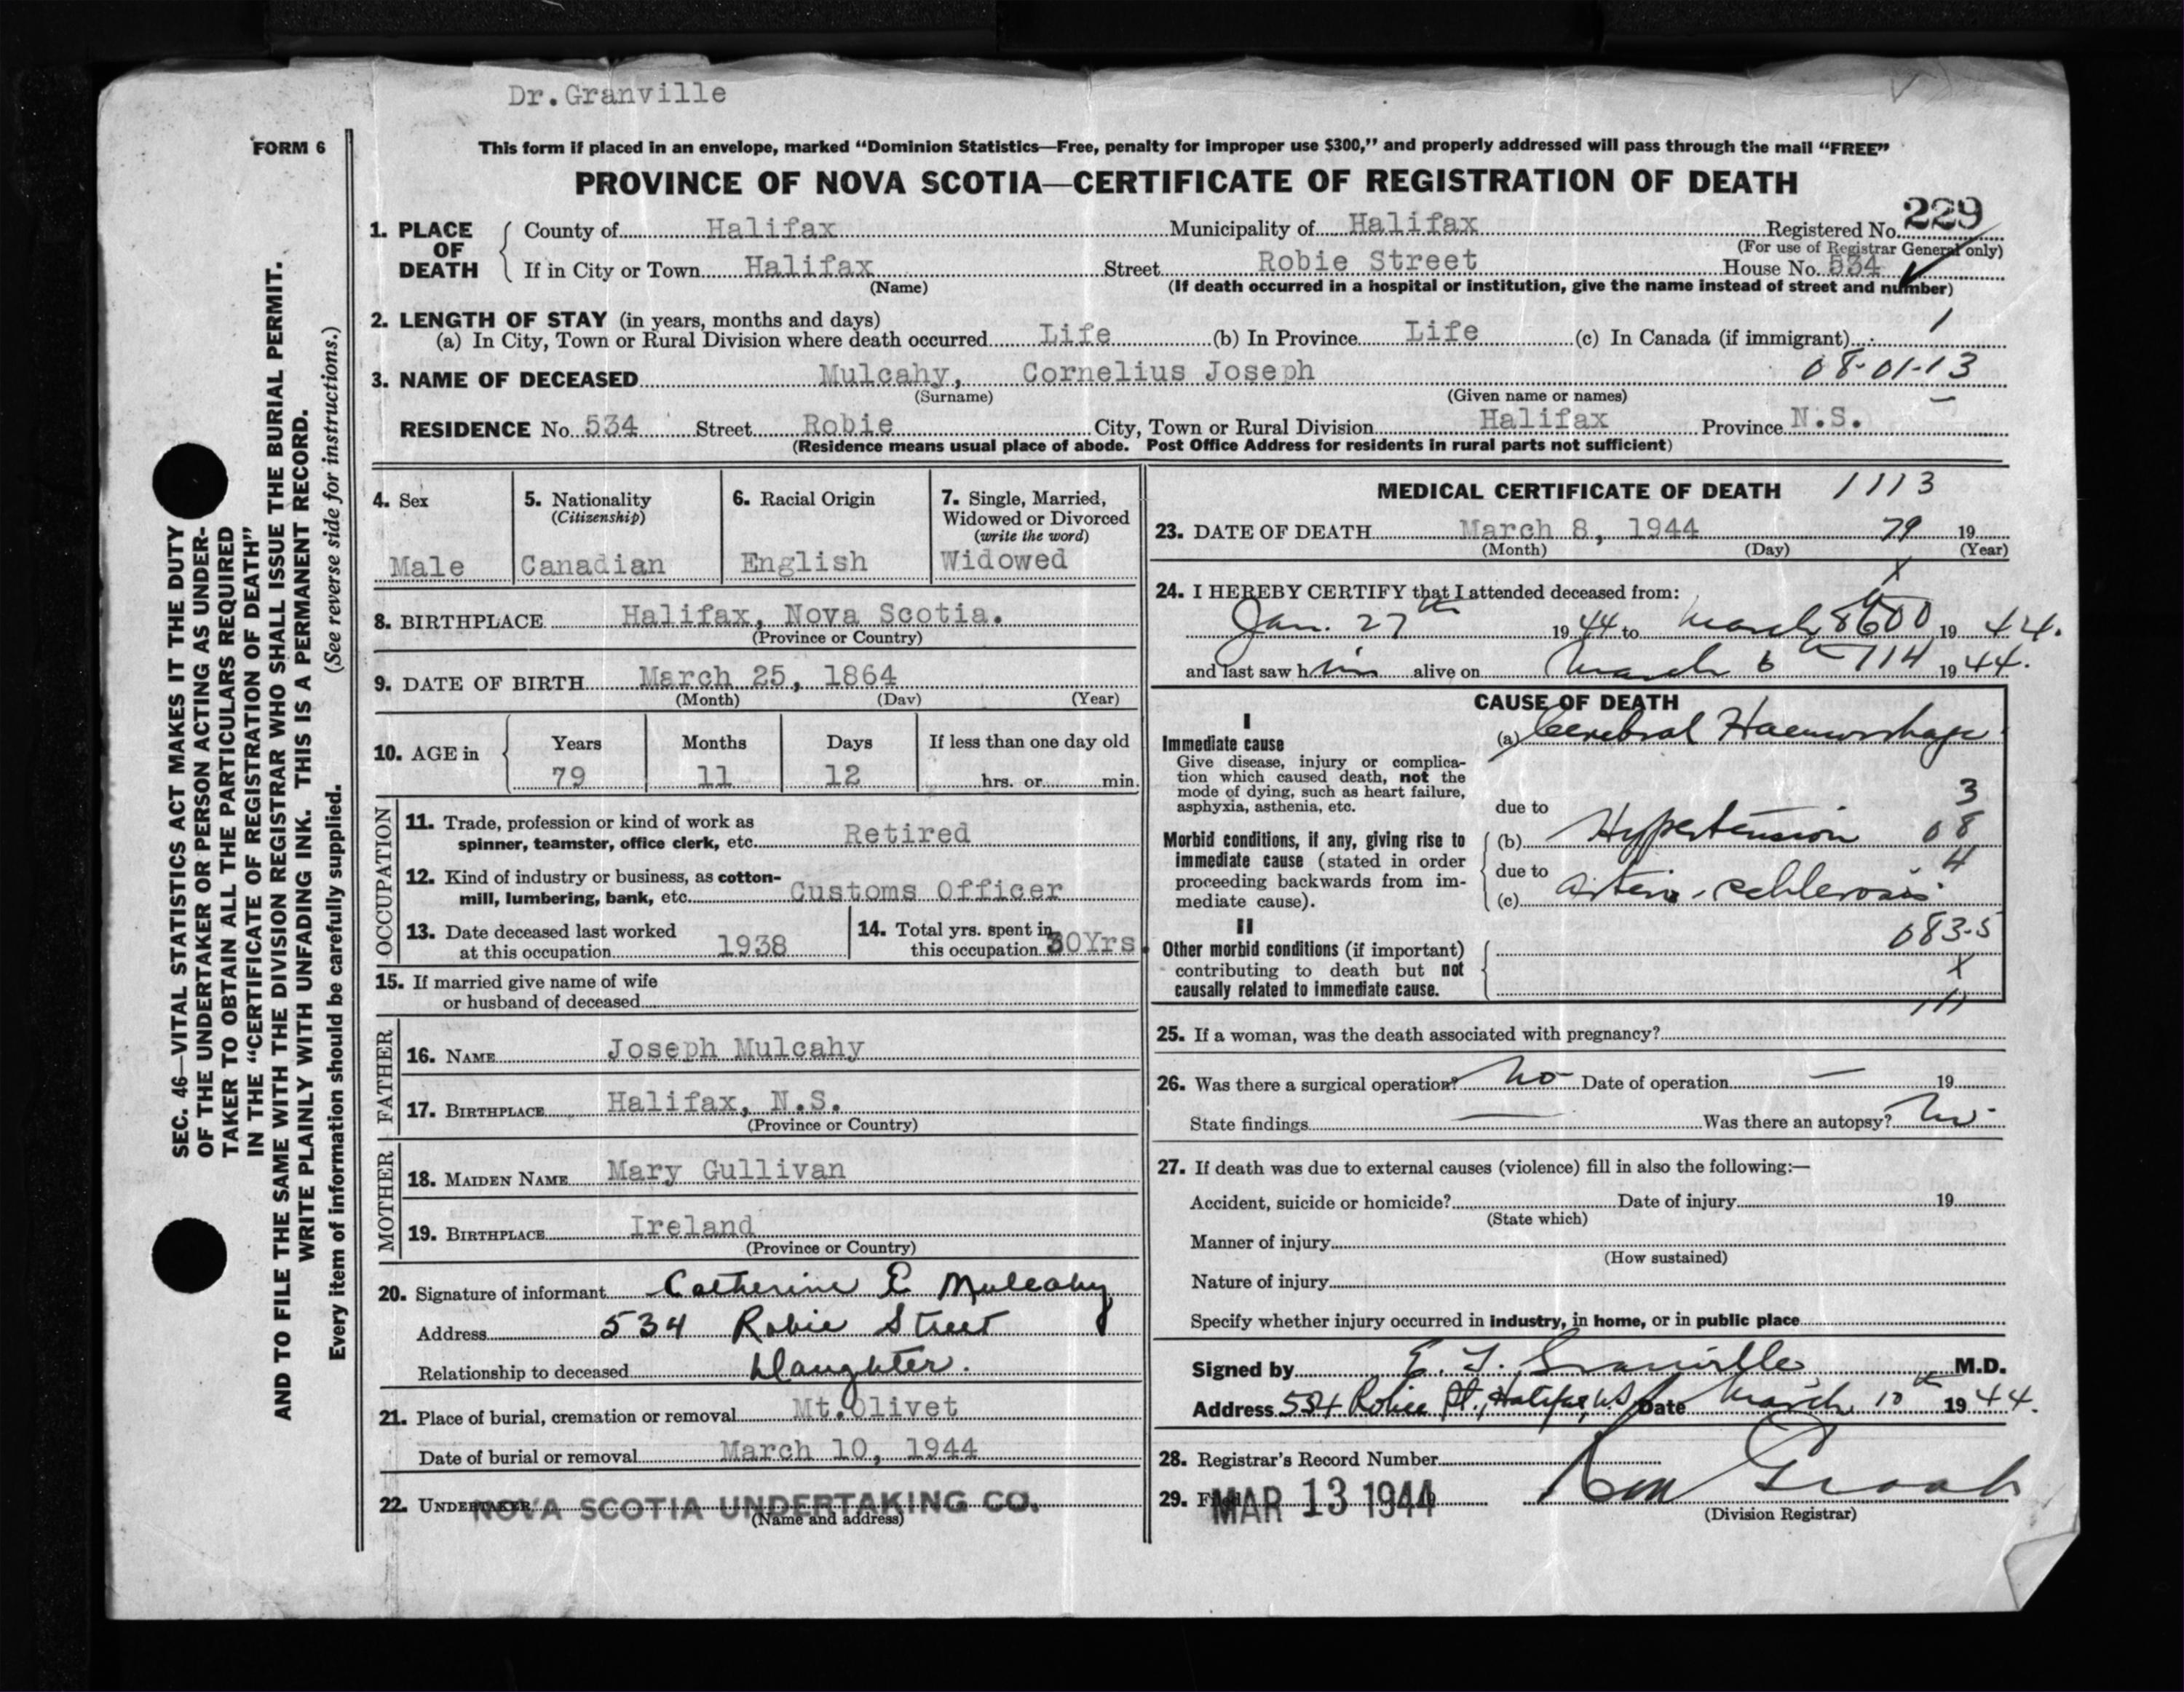 Dr.Granville
FORM 6
This form if placed in an envelope, marked “Dominion Statistics—Free, penalty for improper use $300,” and properly addressed will pass through the mail “FREE”
PROVINCE OF NOVA SCOTIA—CERTIFICATE OF REGISTRATION OF DEATH
1. PLACE OF DEATH County of Halifax Municipality of Halifax Registered No. 229
(For use of Registrar General only)
If in City or Town Halifax Street Robie Street House No. 534
(Name) (If death occurred in a hospital or institution, give the name instead of street and number)
2. LENGTH OF STAY (in years, months and days) 1
(a) In City, Town or Rural Division where death occurred Life (b) In Province Life (c) In Canada (if immigrant)
3. NAME OF DECEASED Mulcahy, Cornelius Joseph 08-01-13
(Surname) (Given name or names)
RESIDENCE No. 534 Street Robie City, Town or Rural Division Halifax Province N.S.
(Residence means usual place of abode. Post Office Address for residents in rural parts not sufficient)
4. Sex Male
5. Nationality (Citizenship) Canadian
6. Racial Origin English
7. Single, Married, Widowed or Divorced (write the word) Widowed
8. BIRTHPLACE Halifax, Nova Scotia.
(Province or Country)
9. DATE OF BIRTH March 25, 1864
(Month) (Day) (Year)
10. AGE in Years 79 Months 11 Days 12 If less than one day old hrs. or min.
OCCUPATION
11. Trade, profession or kind of work as
spinner, teamster, office clerk, etc. Retired
12. Kind of industry or business, as cotton-
mill, lumbering, bank, etc. Customs Officer
13. Date deceased last worked
at this occupation 1938
14. Total yrs. spent in
this occupation 30Yrs.
15. If married give name of wife
or husband of deceased
FATHER
16. NAME Joseph Mulcahy
17. BIRTHPLACE Halifax, N.S.
(Province or Country)
MOTHER
18. MAIDEN NAME Mary Gullivan
19. BIRTHPLACE Ireland
(Province or Country)
20. Signature of informant Catherine E Mulcahy
Address 534 Robie Street
Relationship to deceased Daughter.
21. Place of burial, cremation or removal Mt.Olivet
Date of burial or removal March 10, 1944
22. UNDERTAKER NOVA SCOTIA UNDERTAKING CO.
(Name and address)
MEDICAL CERTIFICATE OF DEATH 1113
23. DATE OF DEATH March 8, 1944 79 19
(Month) (Day) (Year)
24. I HEREBY CERTIFY that I attended deceased from:
Jan. 27th 1944 to March 8 600 1944.
and last saw him alive on March 6th 714 1944.
CAUSE OF DEATH
I
Immediate cause (a) Cerebral Haemorrhage
Give disease, injury or complica-
tion which caused death, not the
mode of dying, such as heart failure,
asphyxia, asthenia, etc.
due to 3
Morbid conditions, if any, giving rise to (b) Hypertension 08
immediate cause (stated in order due to 4
proceeding backwards from im-
mediate cause). (c) Arterio-schlerosis
II 083-5
Other morbid conditions (if important)
contributing to death but not X
causally related to immediate cause.
111
25. If a woman, was the death associated with pregnancy?
26. Was there a surgical operation? No Date of operation — 19
State findings — Was there an autopsy? No.
27. If death was due to external causes (violence) fill in also the following:—
Accident, suicide or homicide? Date of injury 19
(State which)
Manner of injury
(How sustained)
Nature of injury
Specify whether injury occurred in industry, in home, or in public place
Signed by E. F. Granville M.D.
Address 534 Robie St., Halifax, NS Date March 10th 1944.
28. Registrar's Record Number
29. Filed MAR 13 1944
(Division Registrar)
SEC. 46—VITAL STATISTICS ACT MAKES IT THE DUTY
OF THE UNDERTAKER OR PERSON ACTING AS UNDER-
TAKER TO OBTAIN ALL THE PARTICULARS REQUIRED
IN THE “CERTIFICATE OF REGISTRATION OF DEATH”
AND TO FILE THE SAME WITH THE DIVISION REGISTRAR WHO SHALL ISSUE THE BURIAL PERMIT.
WRITE PLAINLY WITH UNFADING INK. THIS IS A PERMANENT RECORD.
Every item of information should be carefully supplied. (See reverse side for instructions.)